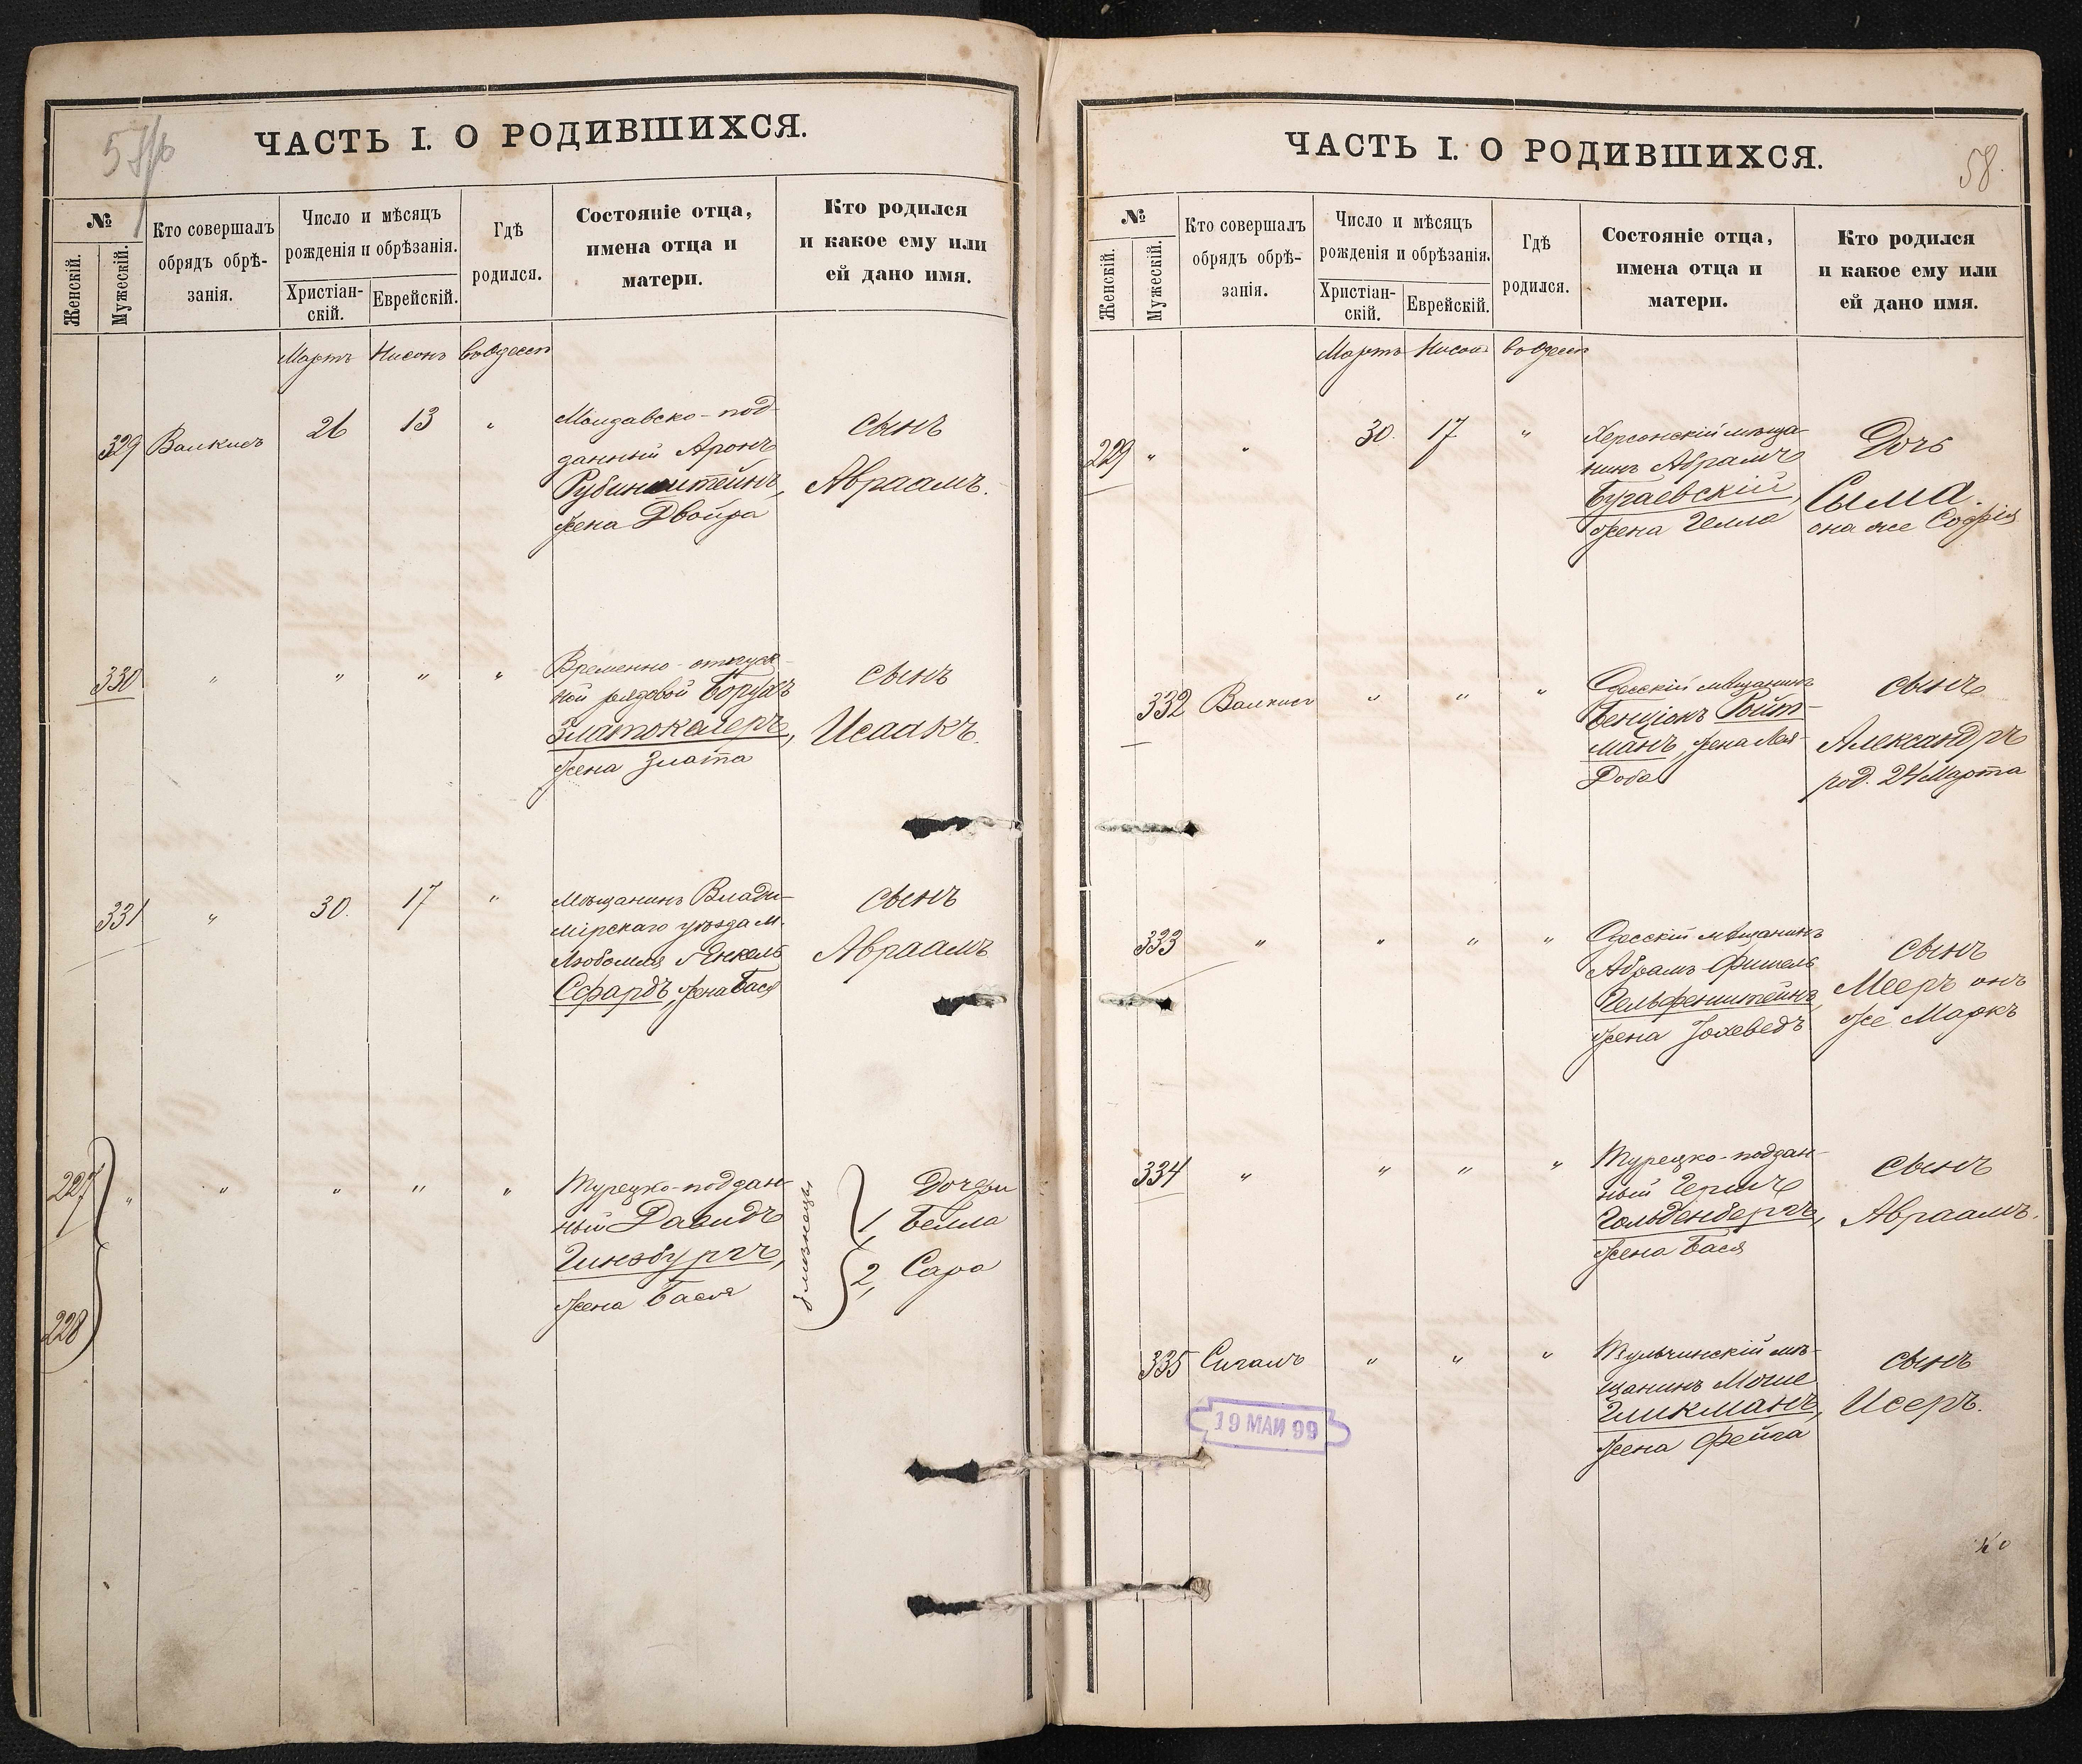 57/б
ЧАСТЬ I. О РОДИВШИХСЯ.
№
Женскій.
Мужескій.
Кто совершалъ
обрядъ обрѣ-
занія.
Число и мѣсяцъ
рожденія и обрѣзанія.
Христіан-
скій.
Еврейскій.
Гдѣ
родился.
Состояніе отца,
имена отца и
матери.
Кто родился
и какое ему или
ей дано имя.
Мартъ Нисонъ в Одессѣ
329 Валкисъ 26 13 „
Молдавско-под-
данный Аронъ
Рубинштейнъ,
жена Двойра
сынъ
Авраамъ.
330 „ „ „ „
Временно-отпуск-
ной рядовой Борухъ
Златокалеръ,
жена Злата
сынъ
Исаакъ.
331 „ 30. 17 „
Мѣщанинъ Влади-
мірскаго уѣзда м.
Любомля Янкель
Сфардъ, жена Бася
сынъ
Авраамъ
227
228
„ „ „ „ „
Турецко-поддан-
ный Давидъ
Гинзбургъ,
жена Бася
близнецы
Дочери
1, Бейла
2, Сара
58.
ЧАСТЬ I. О РОДИВШИХСЯ.
№
Женскій.
Мужескій.
Кто совершалъ
обрядъ обрѣ-
занія.
Число и мѣсяцъ
рожденія и обрѣзанія.
Христіан-
скій.
Еврейскій.
Гдѣ
родился.
Состояніе отца,
имена отца и
матери.
Кто родился
и какое ему или
ей дано имя.
Мартъ Нисонъ в Одессѣ
229 „ „ 30. 17 „
Херсонскій мѣща-
нинъ Абрамъ
Бугаевскій,
жена Гелла
Дочь
Сыма.
она же Софія
332 Валкисъ „ „ „
Одесскій мѣщанинъ
Бенціонъ Ройт-
манъ, жена Лея
Доба
сынъ
Александръ
род. 24 Марта
333 „ „ „ „
Одесскій мѣщанинъ
Абрамъ Фишель
Гельфенштейнъ,
жена Іохеведъ
сынъ
Мееръ онъ
же Маркъ
334 „ „ „ „
Турецко-поддан-
ный Гершъ
Гольденбергъ,
жена Бася
сынъ
Авраамъ.
335 Сигалъ „ „ „
Тульчинскій мѣ-
щанинъ Моше
Гликманъ,
жена Фейга
сынъ
Исеръ.
19 МАИ 99